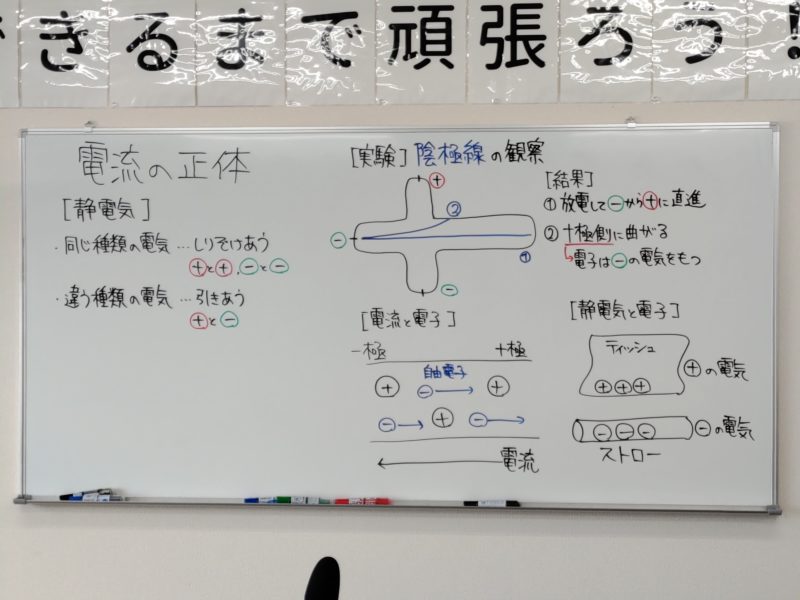 できるまで頑張ろう!
電流の正体
[静電気]
・同じ種類の電気…しりぞけあう
⊕と⊕,⊖と⊖
・違う種類の電気…引きあう
⊕と⊖
[実験]陰極線の観察
⊕
②
⊖
①
⊖
[結果]
① 放電して⊖から⊕に直進
② +極側に曲がる
↳電子は⊖の電気をもつ
[電流と電子]
−極 +極
自由電子
⊕ ⊖→ ⊕
⊖→ ⊕ ⊖→
← 電流
[静電気と電子]
ティッシュ
⊕⊕⊕
⊕の電気
⊖⊖⊖ ⊖の電気
ストロー